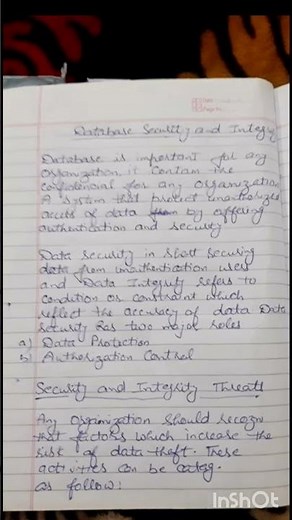 Database Security and Integrity
Database is important for any
organization it contain the
confidencial for any organization
A system that prevent unauthorized
access of data by offering
authentication and security
Data security in short securing
data from unauthentication users
and Data Integrity refers to
condition or constraint which
reflect the accuracy of data Data
security has two major roles
a) Data Protection
b) Authorization Control
Security and Integrity Threats
Any Organization should recogn
that factors which increase the
risk of data theft. These
activities can be categ.
as follow:
InShOt